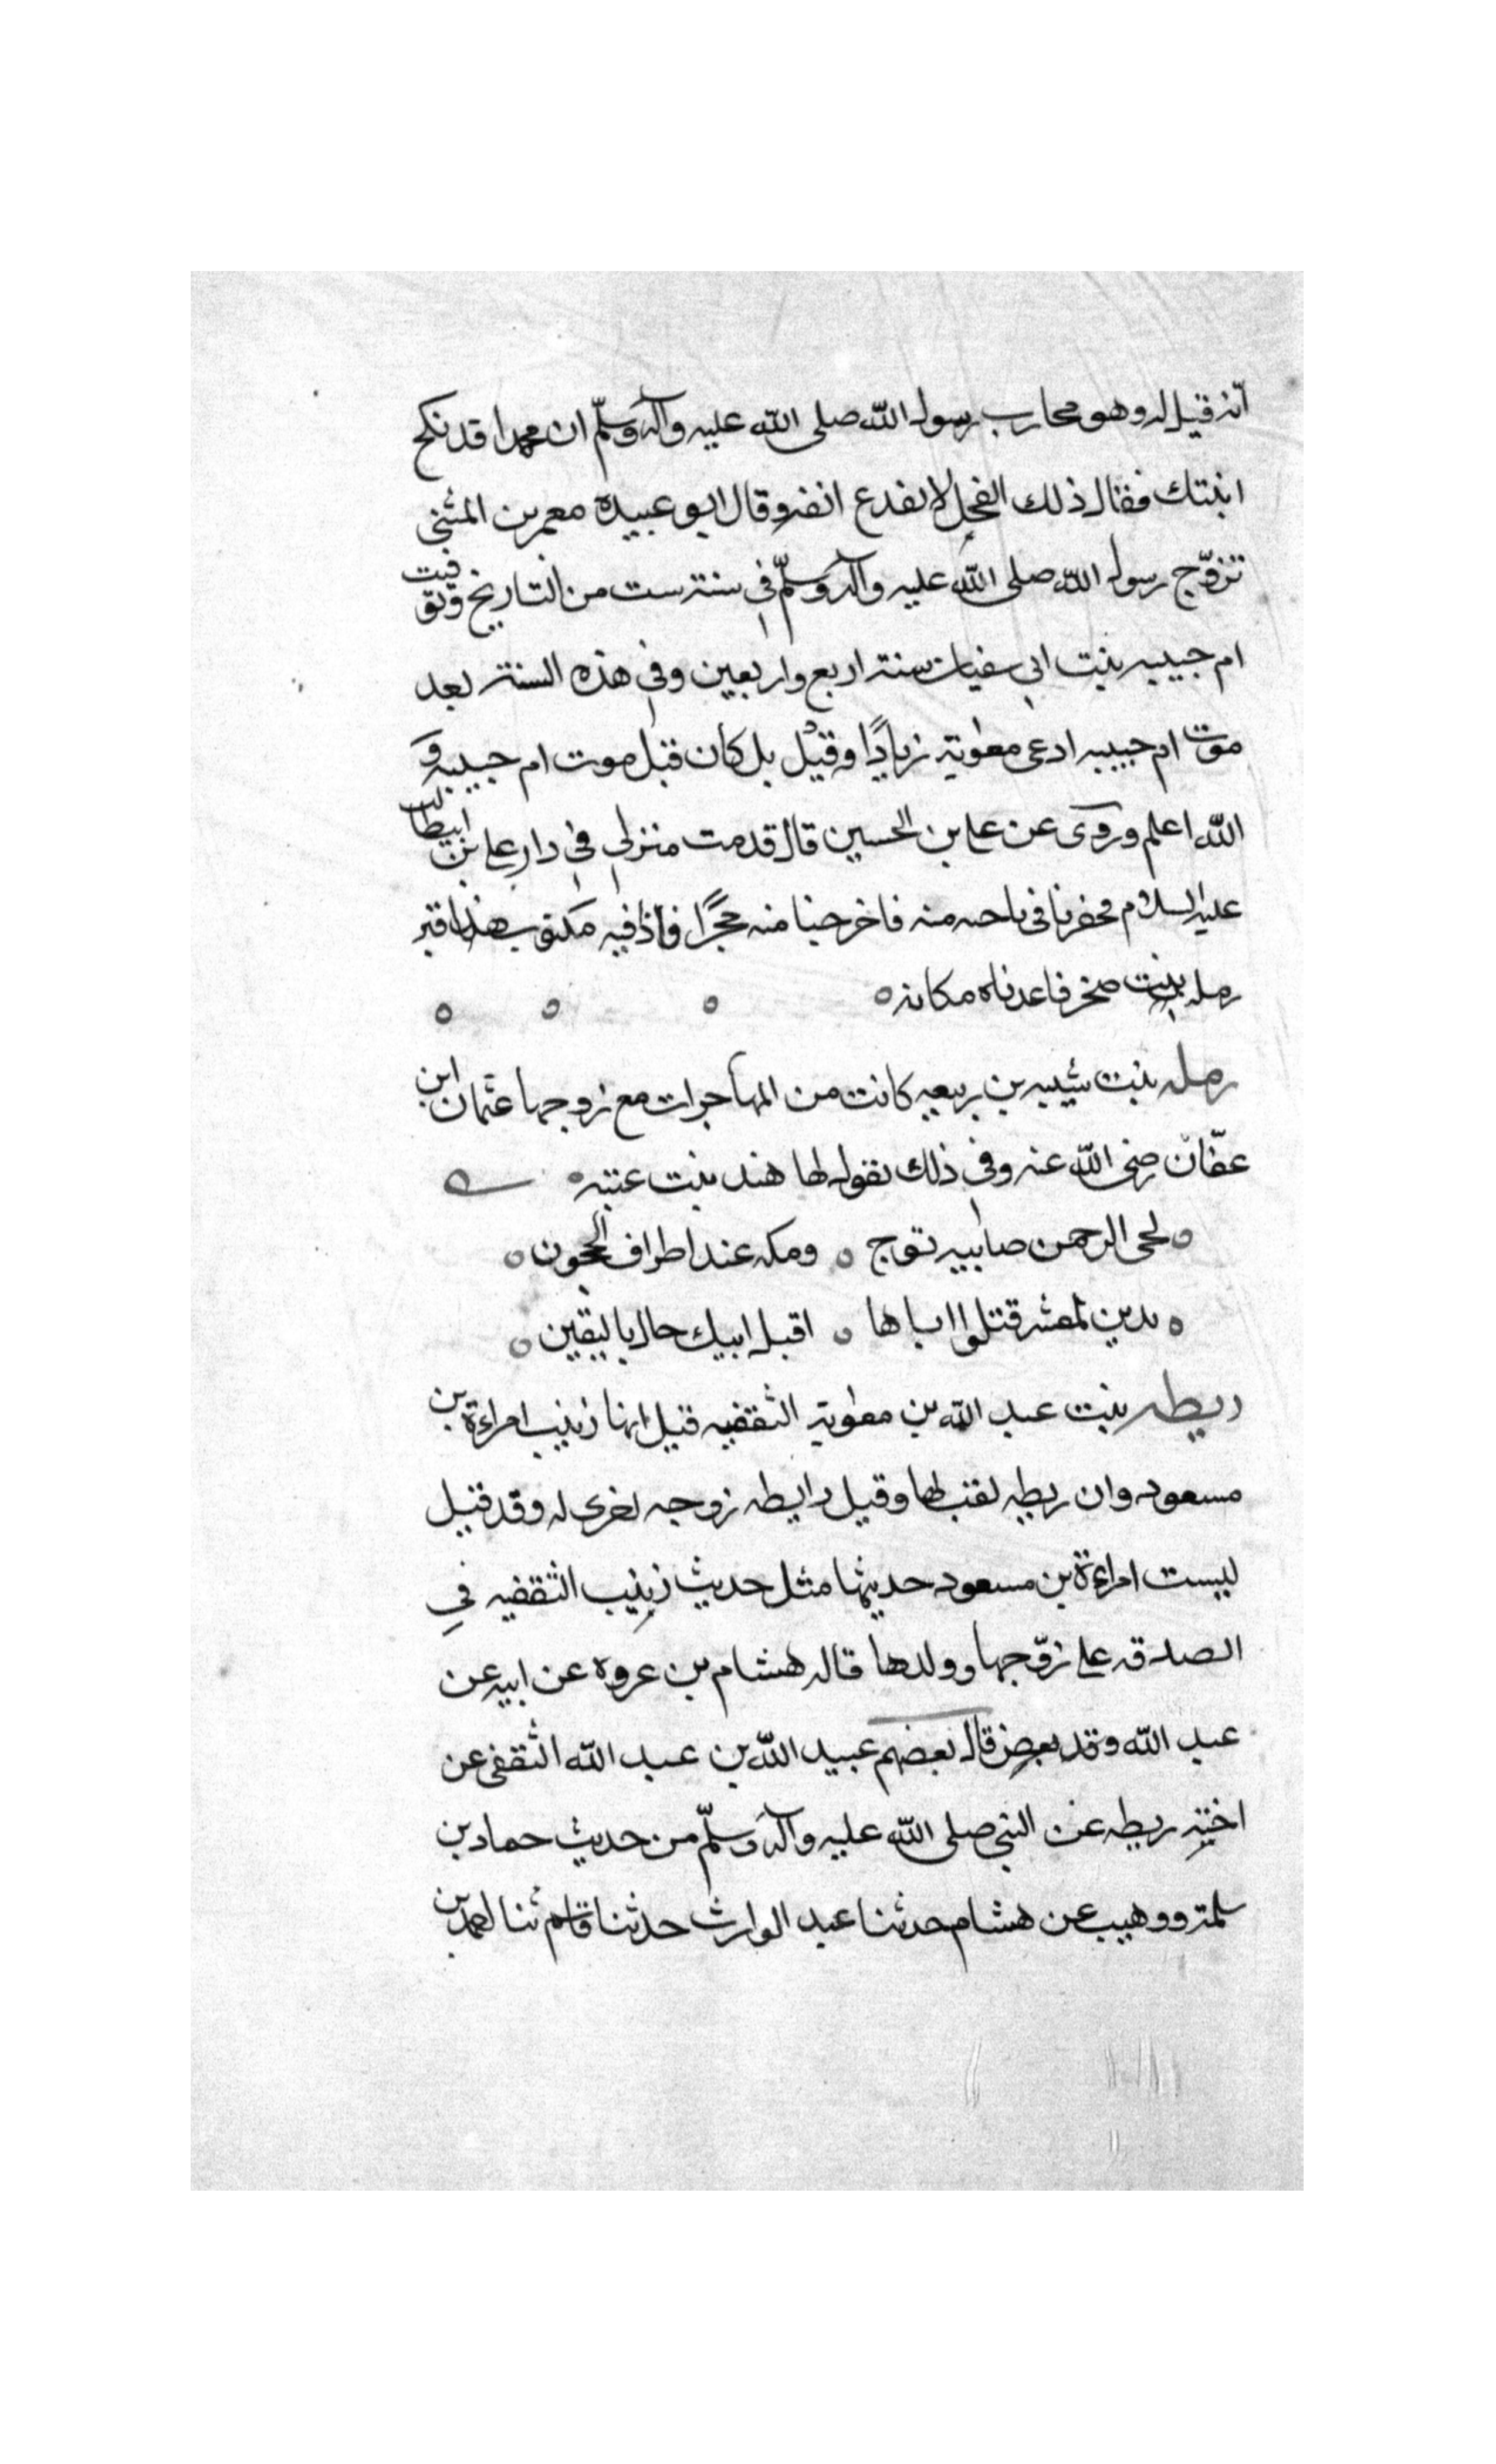 انه قيل له وهو محارب رسول الله صلى الله عليه وآله وسلّم ان محمدا قد نكح
ابنتك فقال ذلك الفحل لا يقدع انفه وقال ابو عبيدة معمر بن المثنى
تزوّج رسول الله صلى الله عليه وآله وسلّم في سنة ست من التاريخ وتوفيت
ام حبيبه بنت ابي سفيان سنة اربع واربعين وفي هذه السنة بعد
موت ام حبيبه ادعى معوية زيادًا وقيل بل كان قبل موت ام حبيبه و
الله اعلم وروى عن علي بن الحسين قال قدمت منزلي في دار علي بن ابيطالب
عليه السلام فحفرنا في ناحيه منه فاخرجنا منه حجرًا فاذا فيه مكتوب هذا قبر
رمله بنت صخر فاعدناه مكانه
رمله بنت شيبه بن ربيعه كانت من المهاجرات مع زوجها عثمان ابن
عفّان رضى الله عنه وفي ذلك تقول لها هند بنت عتبه
لحى الرحمن صابيه توج ومكه عند اطراف الحجون
يدين لمعشر قتلوا اباها اقبل ابيك حال باليقين
ريطه بنت عبد الله بن معوية الثقفيه قيل انها زينب امراءة بن
مسعود وان ريطه لقب لها وقيل رايطه زوجه اخرى له وقد قيل
ليست امراءة بن مسعود حديثها مثل حديث زينب الثقفيه في
الصدقه على زوّجها وولدها قاله هشام بن عروه عن ابيه عن
عبد الله وقد بعض قال بعضهم عبيد الله بن عبد الله الثقفى عن
اخته ريطه عن النبي صلى الله عليه وآله وسلّم من حديث حماد بن
سلمة ووهيب عن هشام حدثنا عبد الوارث حدثنا قاسم ثنا احمد بن